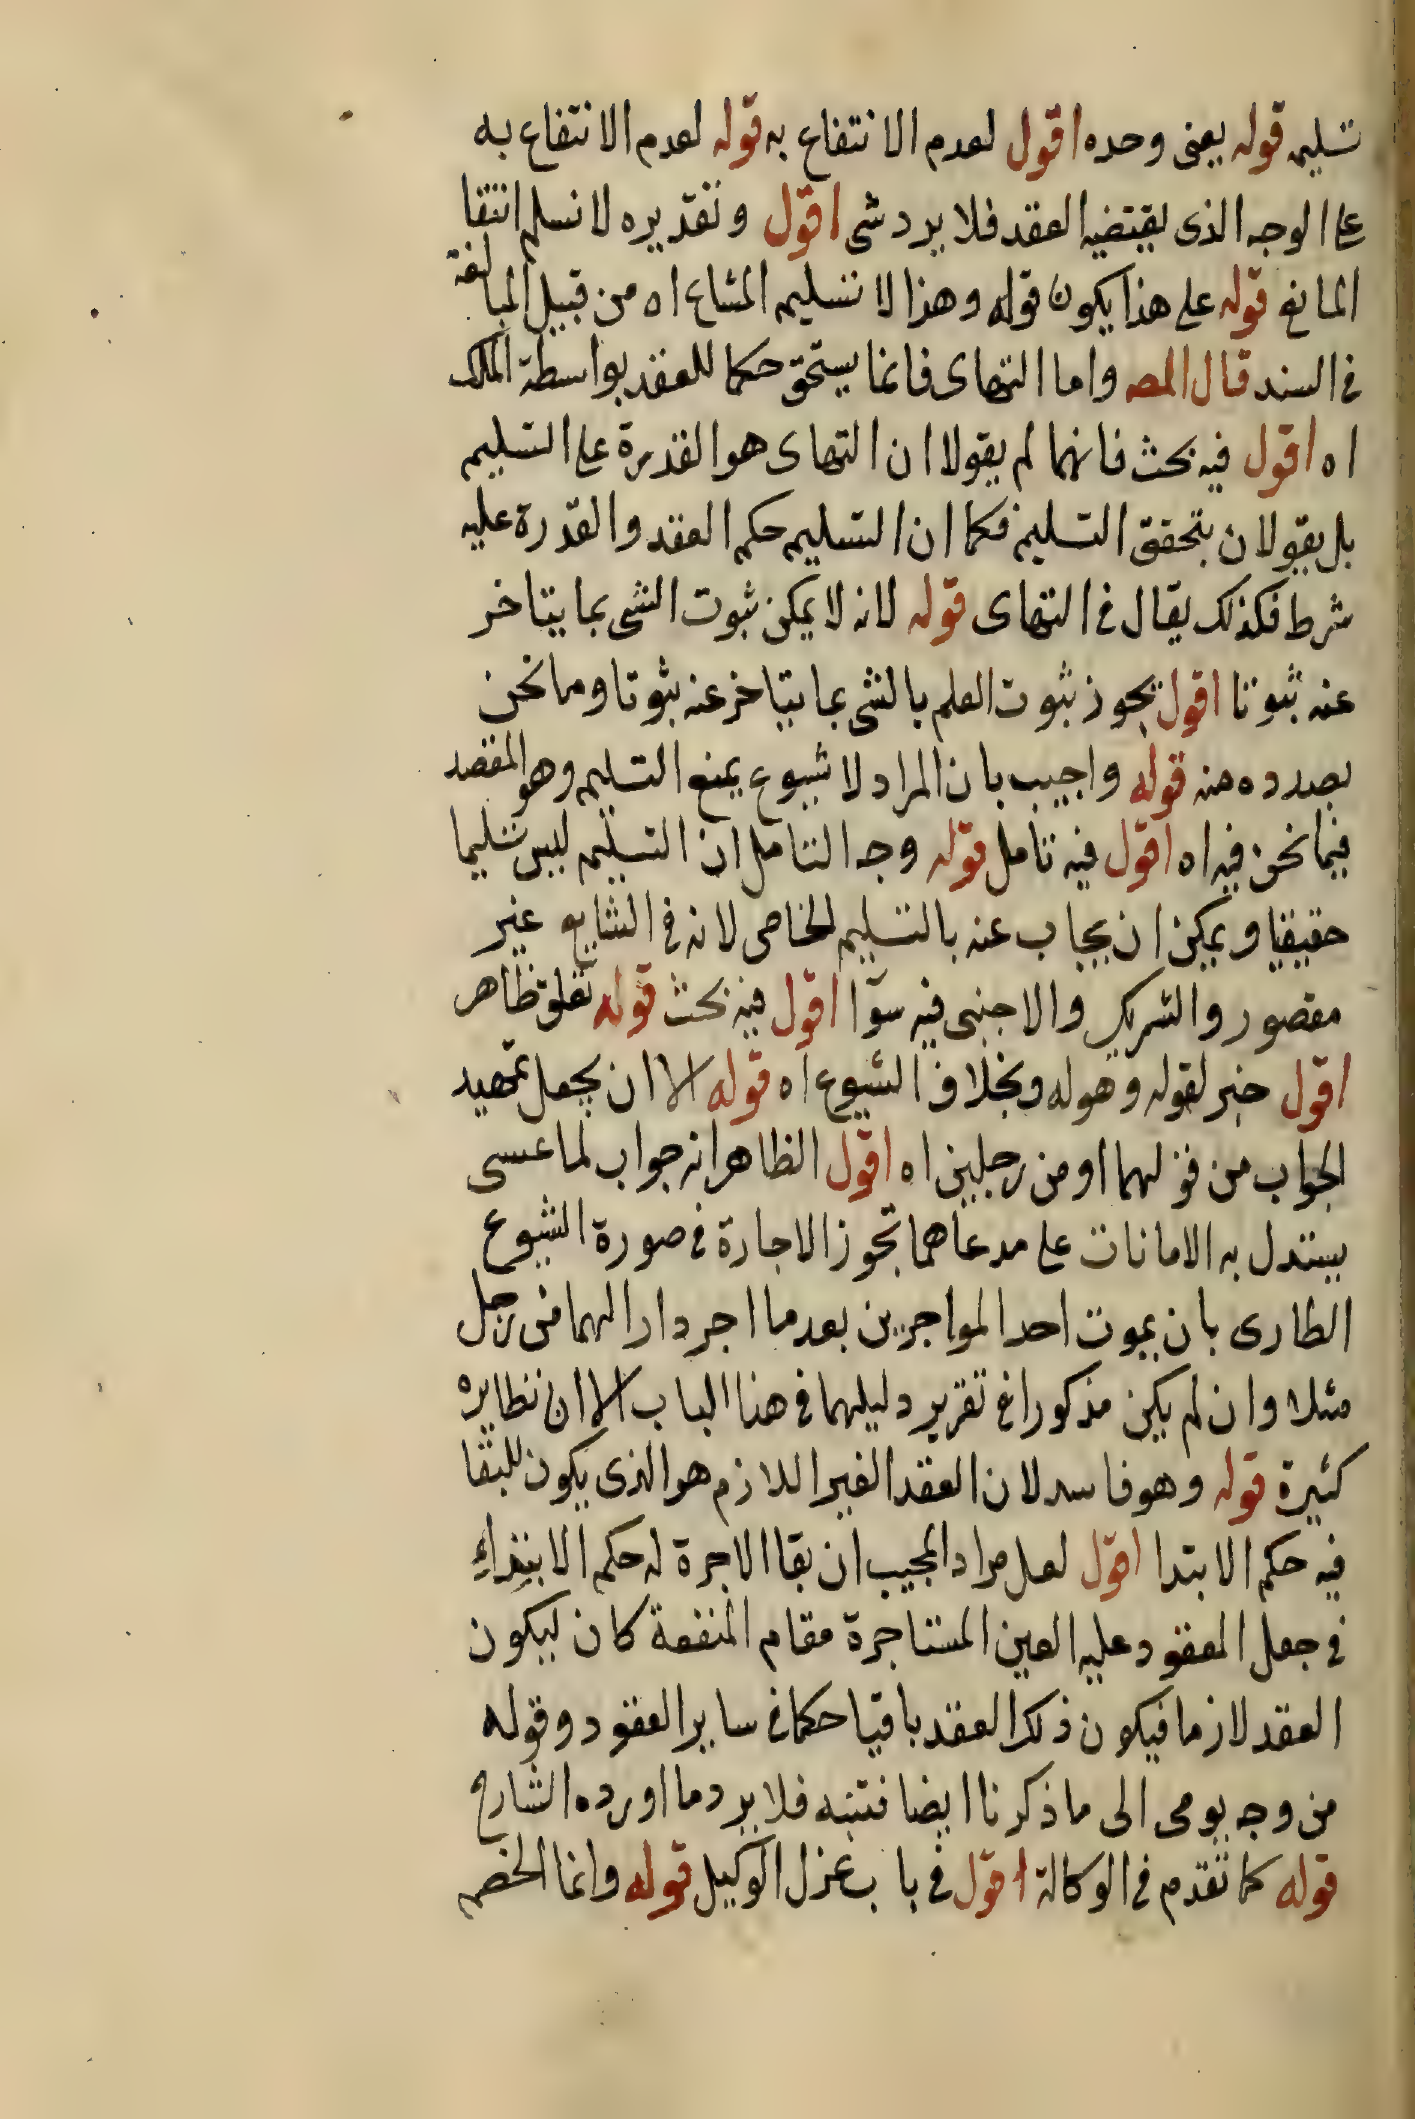 تسليم قوله يعنى وحده اقول لعدم الانتفاع به قوله لعدم الانتفاع به
على الوجه الذى يقتضيه العقد فلا يرد شى اقول وتقديره لا نسلم انتفا
المانع قوله على هذا يكون قوله وهذا لا تسليم المشاع اه من قبيل المبالغة
فى السند قال المصـ واما التهاى فانما يستحق حكما للعقد بواسطة الملك
اه اقول فيه بحث فانهما لم يقولا ان التهاى هو القدرة على التسليم
بل يقولان بتحقق التسليم فكما ان التسليم حكم العقد والقدرة عليه
شرط فكذلك يقال فى التهاى قوله لانه لا يمكن ثبوت الشى بما يتاخر
عنه ثبوتا اقول يجوز ثبوت العلم بالشى بما يتاخر عنه ثبوتا وما نحن
بصدده منه قوله واجيب بان المراد لا شيوع يمنع التسليم وهو المقصد
فيما نحن فيه اه اقول فيه تامل قوله وجه التامل ان التسليم ليس تسليما
حقيقيا ويمكن ان يجاب عنه بالتسليم الخاص لانه فى الشايع غير
مقصور والشريك والاجنبى فيه سوآ اقول فيه بحث قوله تعلقه ظاهر
اقول خبر لقوله وهوله وبخلاف الشيوع اه قوله الا ان يجعل تمهيد
الجواب من قولهما او من رجلين اه اقول الظاهر انه جواب لما عسى
يستدل به الامانات على مدعاهما بجوز الاجارة فى صورة الشيوع
الطارى بان يموت احد المواجرين بعد ما اجر دارا لهما من رجل
مثلا وان لم يكن مذكورا فى تقرير دليلهما فى هذا الباب الا ان نظايره
كثيرة قوله وهو فاسد لان العقد الغير اللازم هو الذى يكون للبقا
فيه حكم الابتدا اقول لعل مراد المجيب ان بقا الاجرة له حكم الابتداء
فى جعل المعقود عليه العين المستاجرة مقام المنفعة كان ليكون
العقد لازما فيكون ذلك العقد باقيا حكما فى ساير العقود وقوله
من وجه يومى الى ما ذكرنا ايضا فتنبه فلا يرد ما اورده الشارح
قوله كما تقدم فى الوكالة اقول فى باب عزل الوكيل قوله وانما الخصم